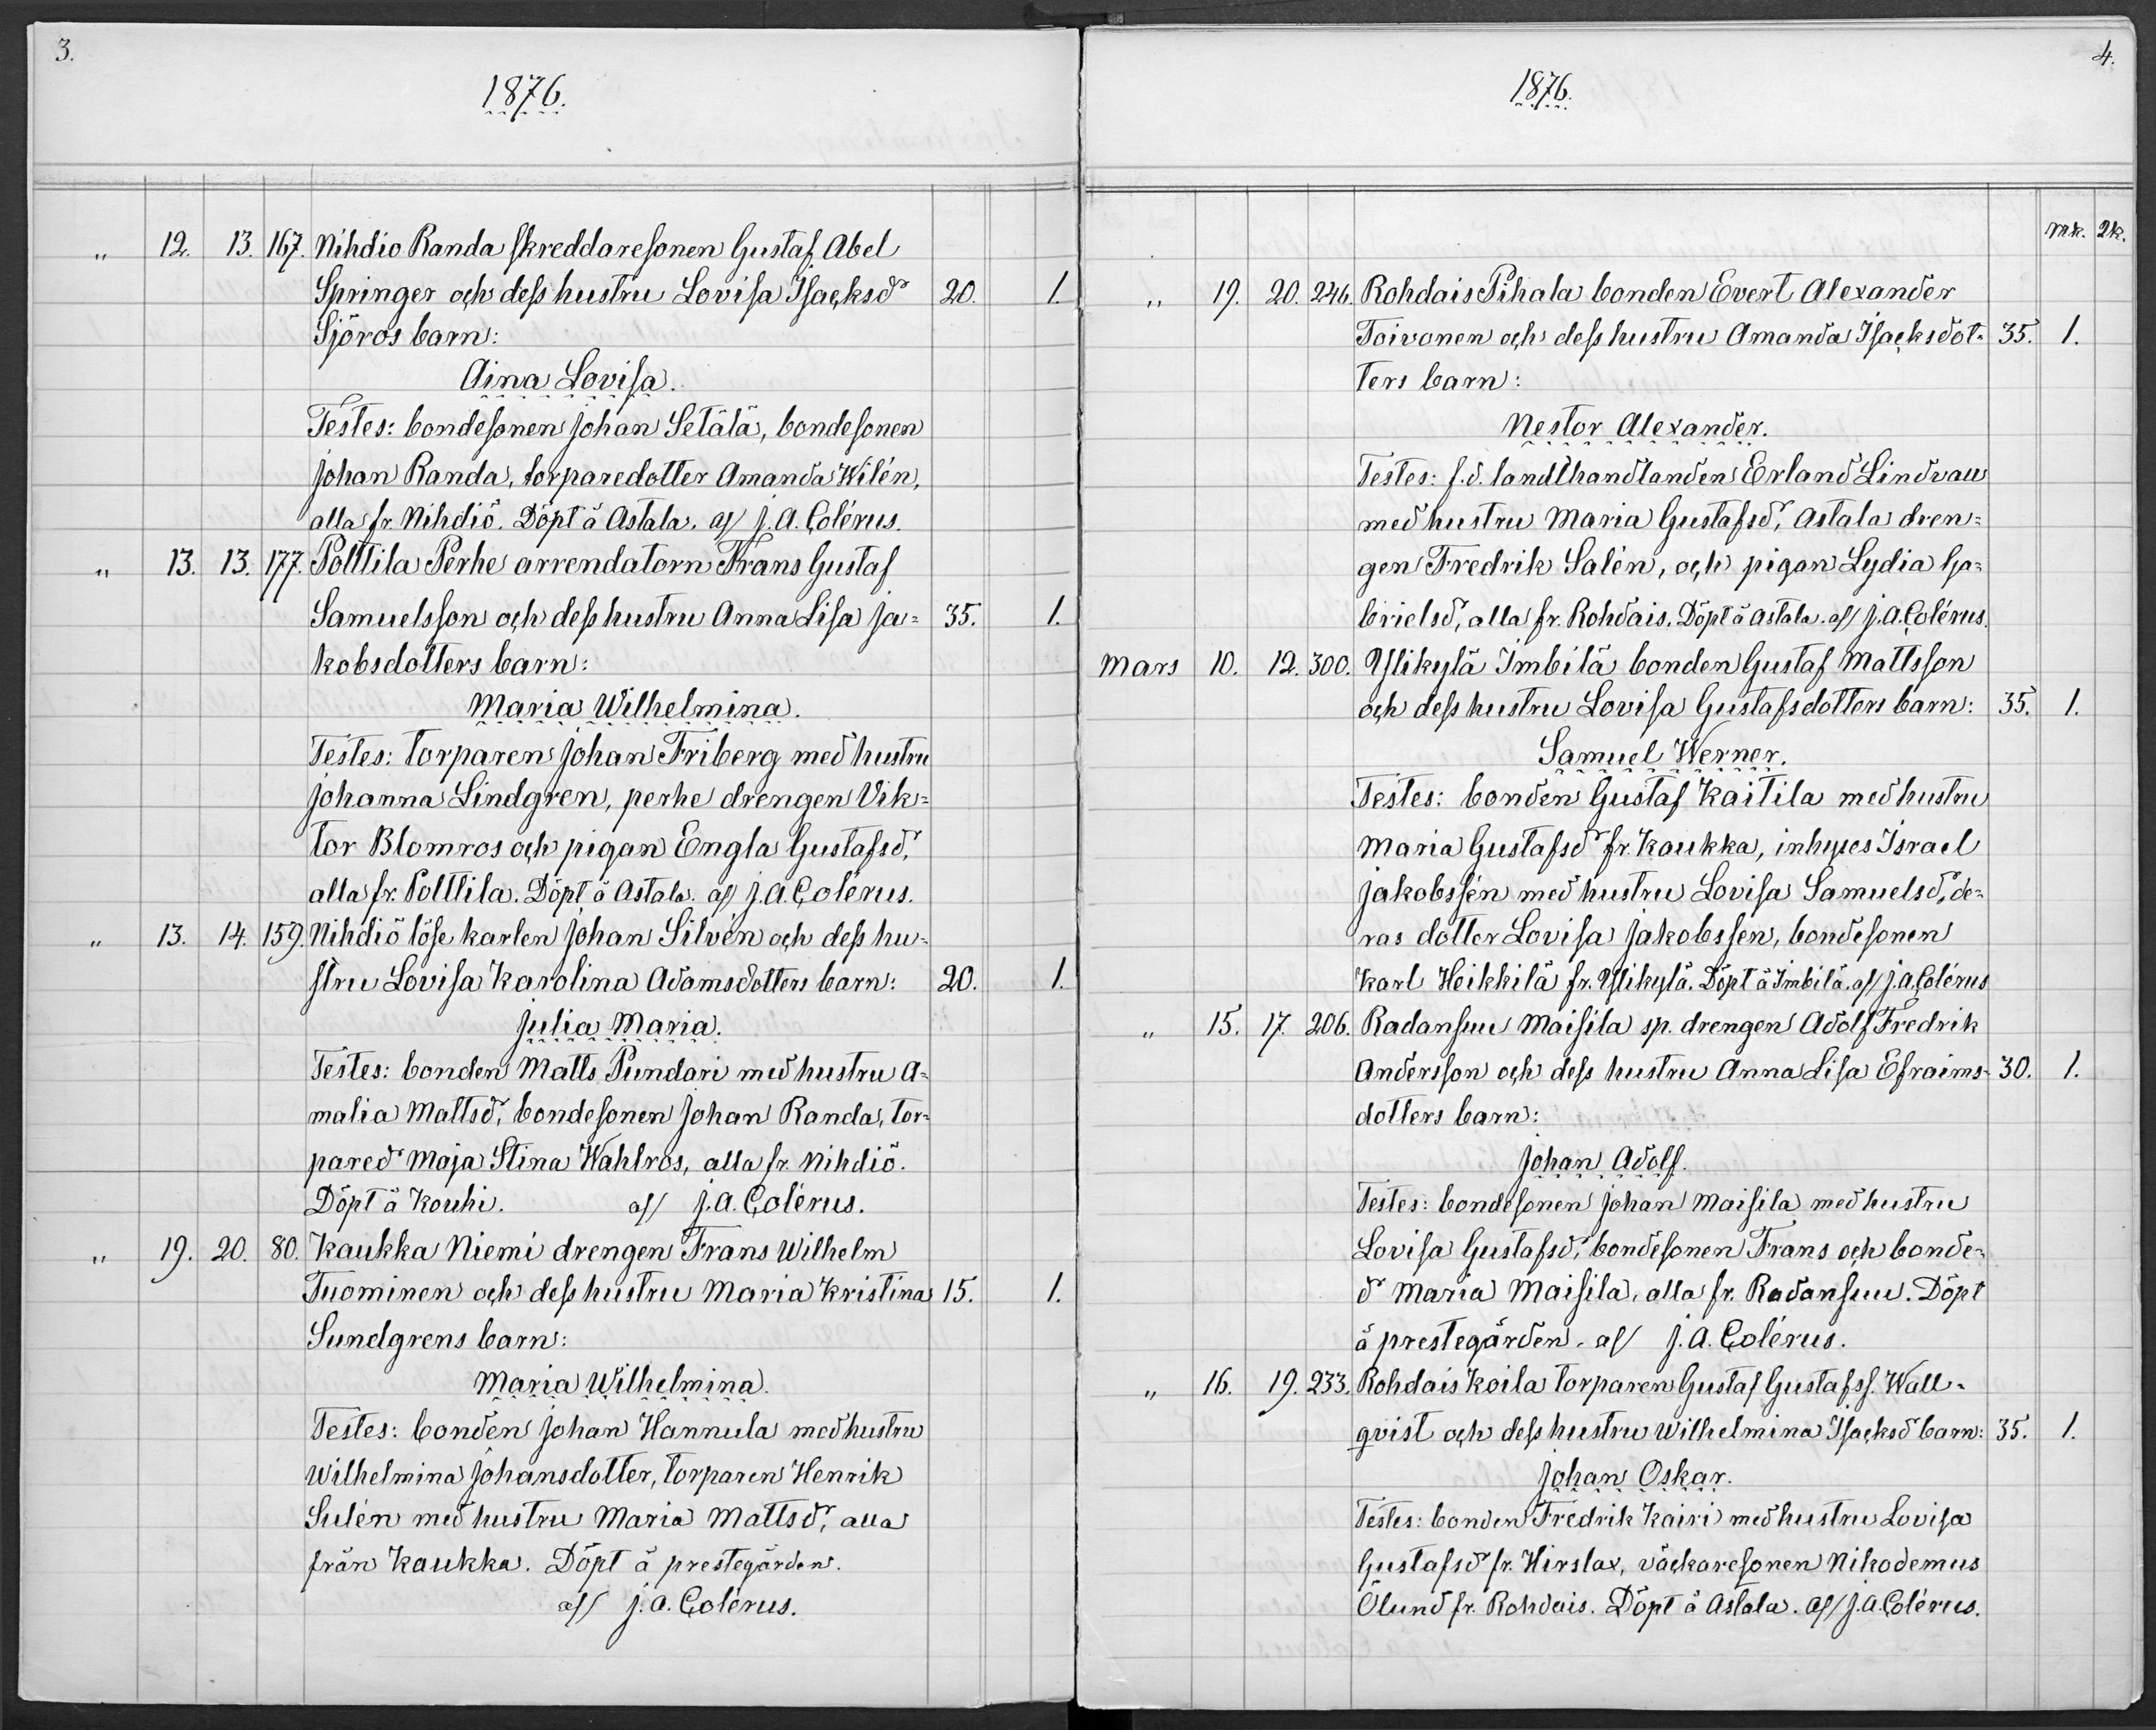 3.
1876.
„ 12. 13. 167. Nihdio Randa skreddaresonen Gustaf Abel
Springer och dess hustru Lovisa Isacksdr 20. 1.
Sjöros barn:
Aina Lovisa.
Testes: bondesonen Johan Setälä, bondesonen
Johan Randa, torparedotter Amanda Wilén,
alla fr. Nihdiö. Döpt å Astala. af J. A. Colérus.
„ 13. 13. 177. Polttila Perhe arrendatorn Frans Gustaf
Samuelsson och dess hustru Anna Lisa Ja= 35. 1.
kobsdotters barn:
Maria Wilhelmina.
Testes: torparen Johan Friberg med hustru
Johanna Lindgren, perhe drengen Vik=
tor Blomros och pigan Engla Gustafsdr,
alla fr. Polttila. Döpt å Astala. af J. A. Colérus.
„ 13. 14. 159. Nihdiö löse karlen Johan Silvén och dess hu=
stru Lovisa Karolina Adamsdotters barn: 20. 1.
Julia Maria.
Testes: bonden Matts Pundari med hustru A=
malia Mattsdr, bondesonen Johan Randa, tor=
paredr Maja Stina Wahlros, alla fr. Nihdiö.
Döpt å Kouhi. af J. A. Colérus.
„ 19. 20. 80. Kaukka Niemi drengen Frans Wilhelm
Tuominen och dess hustru Maria Kristina 15. 1.
Sundgrens barn:
Maria Wilhelmina.
Testes: bonden Johan Hannula med hustru
Wilhelmina Johansdotter, torparen Henrik
Sulén med hustru Maria Mattsdr, alla
från Kaukka. Döpt å prestegården.
af J. A. Colérus.
4.
1876.
mk. 2k.
„ 19. 20. 246. Rohdais Pihala bonden Evert Alexander
Toivonen och dess hustru Amanda Isacksdot= 35. 1.
ters barn:
Nestor Alexander.
Testes: f.d. landthandlanden Erland Lindvall
med hustru Maria Gustafsdr, Astala dren=
gen Fredrik Salén, och pigan Lydia Ga=
brielsdr, alla fr. Rohdais. Döpt å Astala. af J. A. Colérus.
Mars 10. 12. 300. Ylikylä Imbilä bonden Gustaf Mattsson
och dess hustru Lovisa Gustafsdotters barn: 35. 1.
Samuel Werner.
Testes: bonden Gustaf Kaitila med hustru
Maria Gustafsdr fr. Kaukka, inhyses Israel
Jakobssén med hustru Lovisa Samuelsdr, de=
ras dotter Lovisa Jakobssen, bondesonen
Karl Heikkilä fr. Ylikylä. Döpt å Imbilä. af J. A. Colérus
„ 15. 17. 206. Radansuu Maisila sp. drengen Adolf Fredrik
Andersson och dess hustru Anna Lisa Efraims= 30. 1.
dotters barn:
Johan Adolf.
Testes: bondesonen Johan Maisila med hustru
Lovisa Gustafsdr, bondesonen Frans och bonde=
dr Maria Maisila, alla fr. Radansuu. Döpt
å prestegården. af J. A. Colérus.
„ 16. 19. 233. Rohdais Koila torparen Gustaf Gustafss. Wall=
qvist och dess hustru Wilhelmina Isacksd barn: 35. 1.
Johan Oskar.
Testes: bonden Fredrik Kairi med hustru Lovisa
Gustafsdr fr. Hirslax, väckaresonen Nikodemus
Ölund fr. Rohdais. Döpt å Astala. af J. A. Colérus.